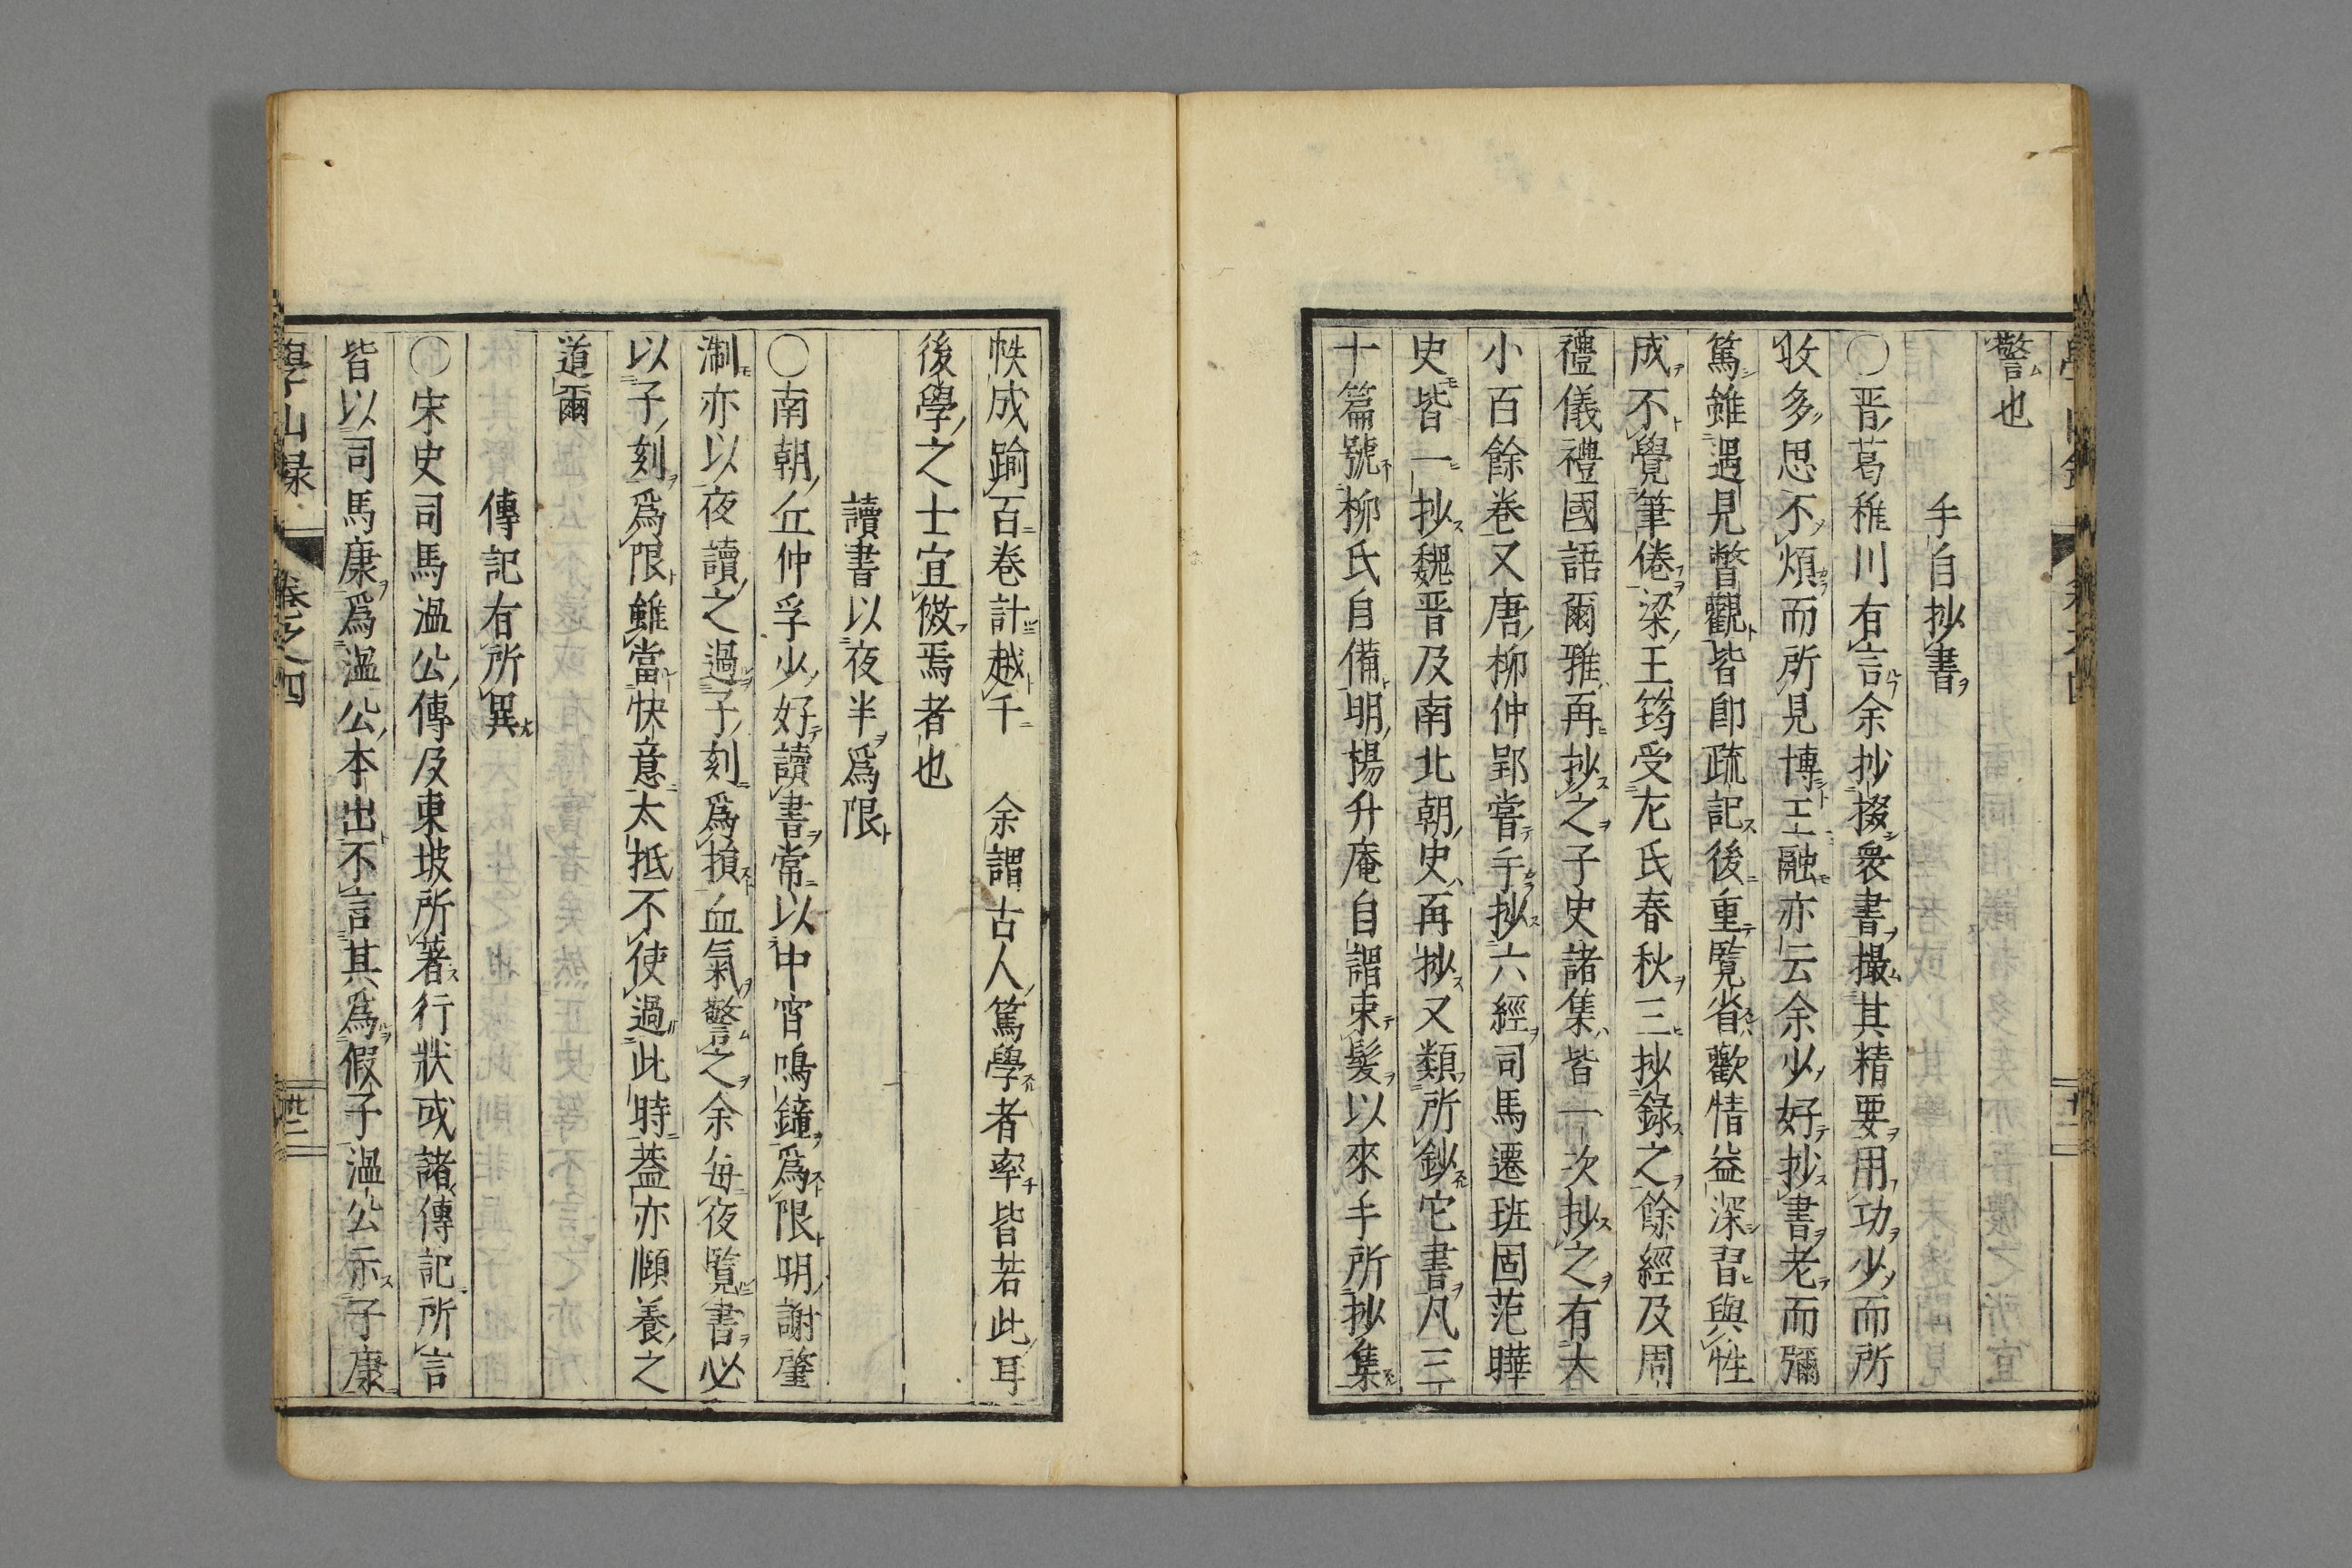 警也
手自抄書
〇晋葛稚川有言余抄掇衆書撮其精要用功少而所
收多思不煩而所見博王融亦云余少好抄書老而彌
篤雖遇見瞥觀皆卽疏記後重覧省歡情益深習與性
成不覺筆倦梁王筠受左氏春秋三抄錄之餘經及周
禮儀禮國語爾雅再抄之子史諸集皆一次抄之有大
小百餘卷又唐柳仲郢嘗手抄六經司馬遷班固范曄
史皆一抄魏晋及南北朝史再抄又類所鈔它書凡三
十篇號柳氏自備明楊升庵自謂束髪以來手所抄集
帙成踰百卷計越千　余謂古人篤學者率皆若此耳
後學之士宜傚焉者也
讀書以夜半爲限
〇南朝丘仲孚少好讀書常以中宵鳴鐘爲限明謝肇
淛亦以夜讀之過子刻爲損血氣警之余毎夜覽書必
以子刻爲限雖當快意太抵不使過此時葢亦頤養之
道爾
傳記有所異
〇宋史司馬温公傳及東坡所著行狀或諸傳記所言
皆以司馬康爲温公本出不言其爲假子温公示子康
學山録　卷之四